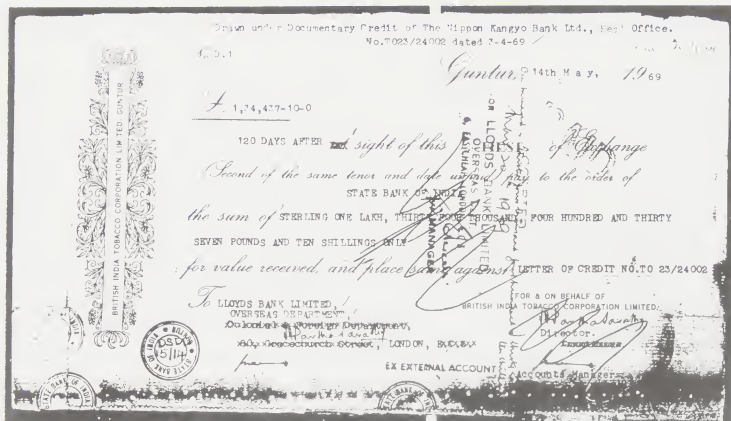 Drawn under Documentary Credit of The Nippon Kangyo Bank Ltd., Head Office.
No.T023/24002 dated 7-4-69
Guntur, 14th May, 1969
£. 1,34,437-10-0
120 DAYS AFTER sight of this of Exchange
(Second of the same tenor and date unpaid) pay to the order of
STATE BANK OF INDIA
the sum of STERLING ONE LAKH, THIRTY FOUR THOUSAND FOUR HUNDRED AND THIRTY
SEVEN POUNDS AND TEN SHILLINGS ONLY
for value received, and place same against LETTER OF CREDIT NO.TO 23/24002
To LLOYDS BANK LIMITED,
OVERSEAS DEPARTMENT,
Colonial & Foreign Department,
80, Gracechurch Street, LONDON,
EX EXTERNAL ACCOUNT
FOR & ON BEHALF OF
BRITISH INDIA TOBACCO CORPORATION LIMITED.
Director.
Accounts Manager
BRITISH INDIA TOBACCO CORPORATION LIMITED. GUNTUR
FOR LLOYDS BANK LIMITED
OVERSEAS DEPT
MANAGER
ACCEPTED
STATE BANK OF INDIA
5/14
STATE BANK OF INDIA